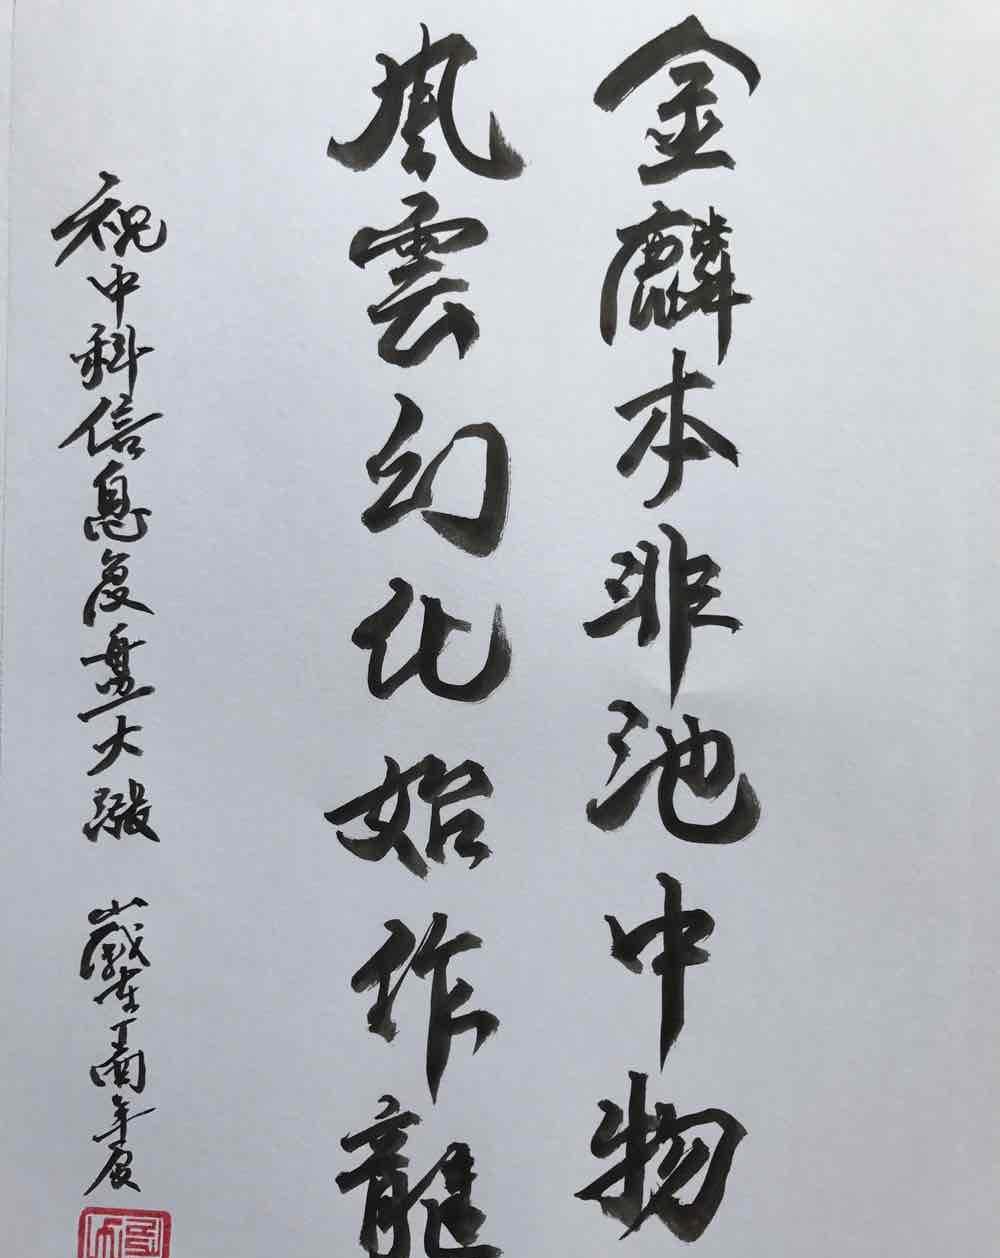 金麟本非池中物
風雲幻化始作龍
祝中科信息復盘大涨
歲在丁酉年夏